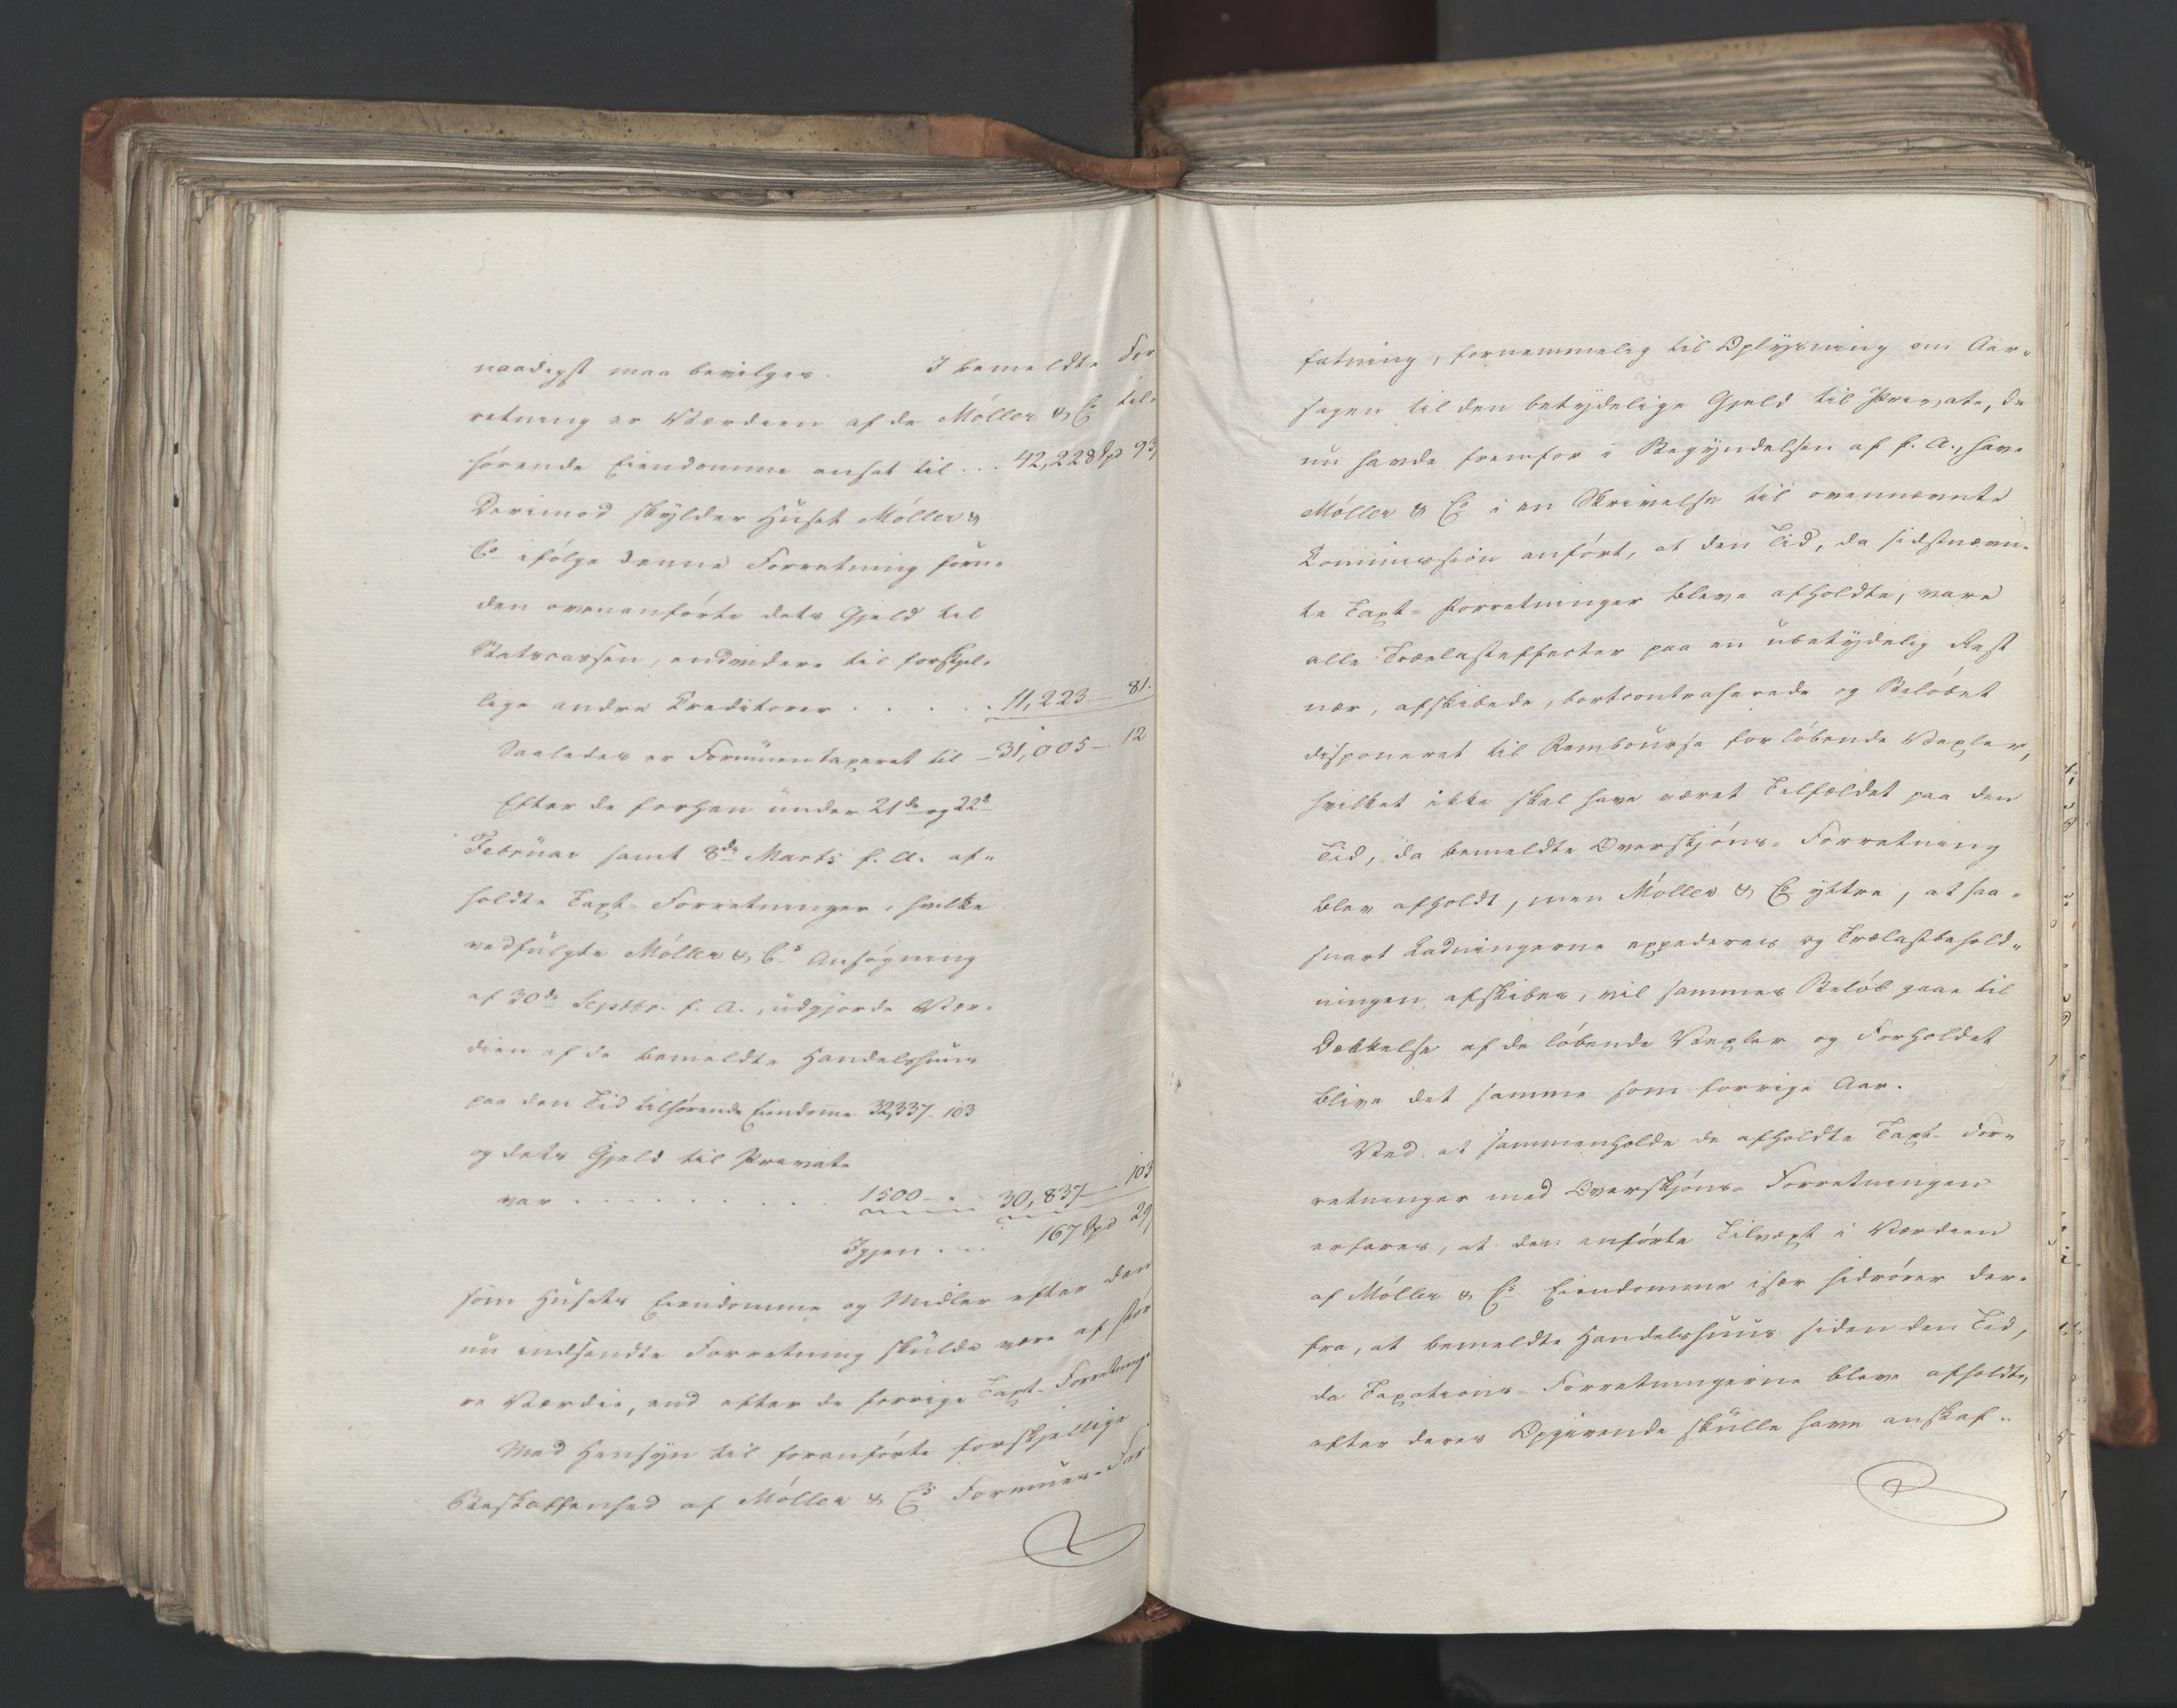 naadigst maa bevilges. I bemeldte For
retning er Værdien af de Móller & Co til-
hørende Eiendomme anset til ... 42,228 Spd 93,
Derimod skylder Huset Móller &
Co ifólge denne Forretning foru-
den ovenanfórte dets Gjeld til
Statscassen, endvidere til forskjel-
lige andre Creditorer . . . . . 11,223 — 81.
Saaledes er Formuen taxeret til — 31,005 — 12
Efter de forhen under 21de og 22de
Februar samt 8de Marts f. A. af-
holdte Taxt-Forretninger, hvilke
vedfulgte Móller & Cos Ansógning
af 30de Septbr. f. A., udgjorde Vær-
dien af de bemeldte Handelshuus
paa den Tid tilhórende Eiendome 32,337 - 103
og dets Gjeld til Private
var . . . . . . . . 1500 — . 30,837 — 103
Igjen .... 167 Spd 29,
som Husets Eiendomme og Midler efter den
nu indsendte Forretning skulde være af stór
re Værdie, end efter de forrige Taxt-Forretninge
Med Hensyn til foranfórte forskjellige
Beskaffenhed af Móller & Cos Formues-For
fatning, fornemmelig til Oplysning om Aar-
sagen til den betydelige Gjeld til Private, de
nu havde fremfor i Begyndelsen af f. A., have
Móller & Co i en Skrivelse til ovennævnte
Commission anfórt, at den Tid, da sidstnævn-
te Taxt-Forretninger bleve afholdte, vare
alle Trælasteffecter paa en ubetydelig Rest
nær, afskibede, bortcontraherede og Belóbet
disponeret til Rembourse for lóbende Vexler,
hvilket ikke skal have været Tilfældet paa den
Tid, da bemeldte Overskjóns-Forretning
blev afholdt, men Móller & Co yttre, at saa-
snart Ladningerne expederes og Trælastbehold-
ningen afskibes, vil sammes Belób gaae til
Dækkelse af de lóbende Vexler og Forholdet
blive det samme som forrige Aar.
Ved at sammenholde de afholdte Taxt-For-
retninger med Overskjóns-Forretningen
erfares, at den anfórte Tilvæxt i Værdien
af Móller & Cos Eiendomme især hidrórer der-
fra, at bemeldte Handelshuus siden den Tid,
da Taxations-Forretningerne bleve afholdte,
efter deres Opgivende skulle have anskaf-